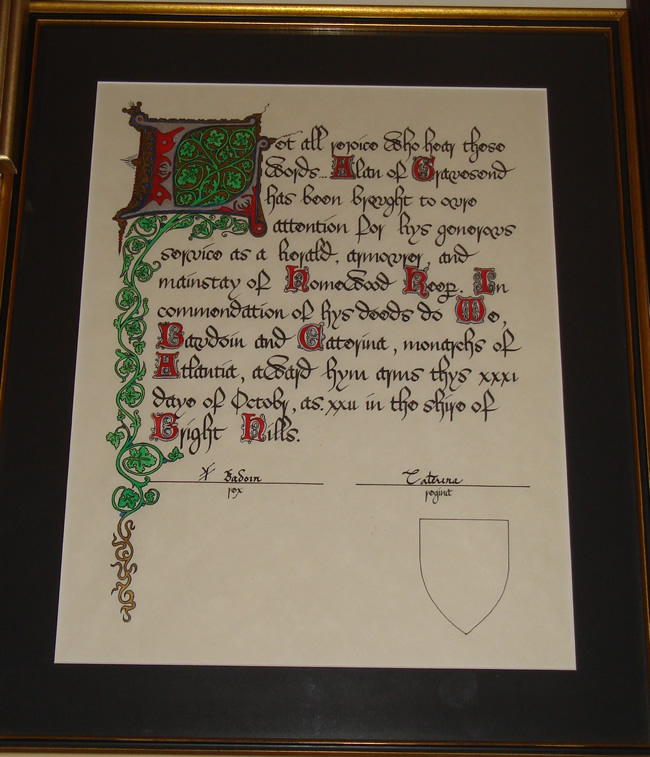 Let all rejoice who hear these
words... Alan of Gravesend
has been brought to owre
attention for hys generous
service as a herald, armourer, and
mainstay of Homewood Keep. In
commendation of hys deeds do We,
Bawdoin and Caterina, monarchs of
Atlantia, award hym arms thys xxxi
daye of Octobr, as. xxii in the shire of
Bright Hills.
Badoin Caterina
rex regina